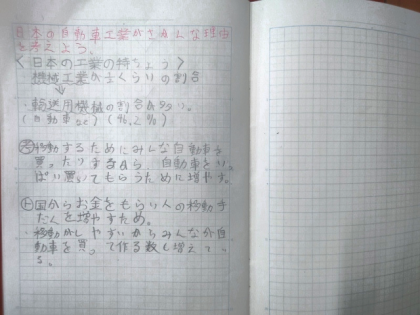 日本の自動車工業がさかんな理由
を考えよう。
〈日本の工業の特ちょう〉
機械工業が くらいの割合
↓
・輸送用機械の割合が 。
(自動車など)
移動するためにみんな自動車を
買ったりするから、自動車をいっ
ぱい買ってもらうために増やす。
国からお金をもらい人の移動手
だんを増やすため。
・移動がしやすいからみんなが自
動車を買って作る数も増えてい
る。